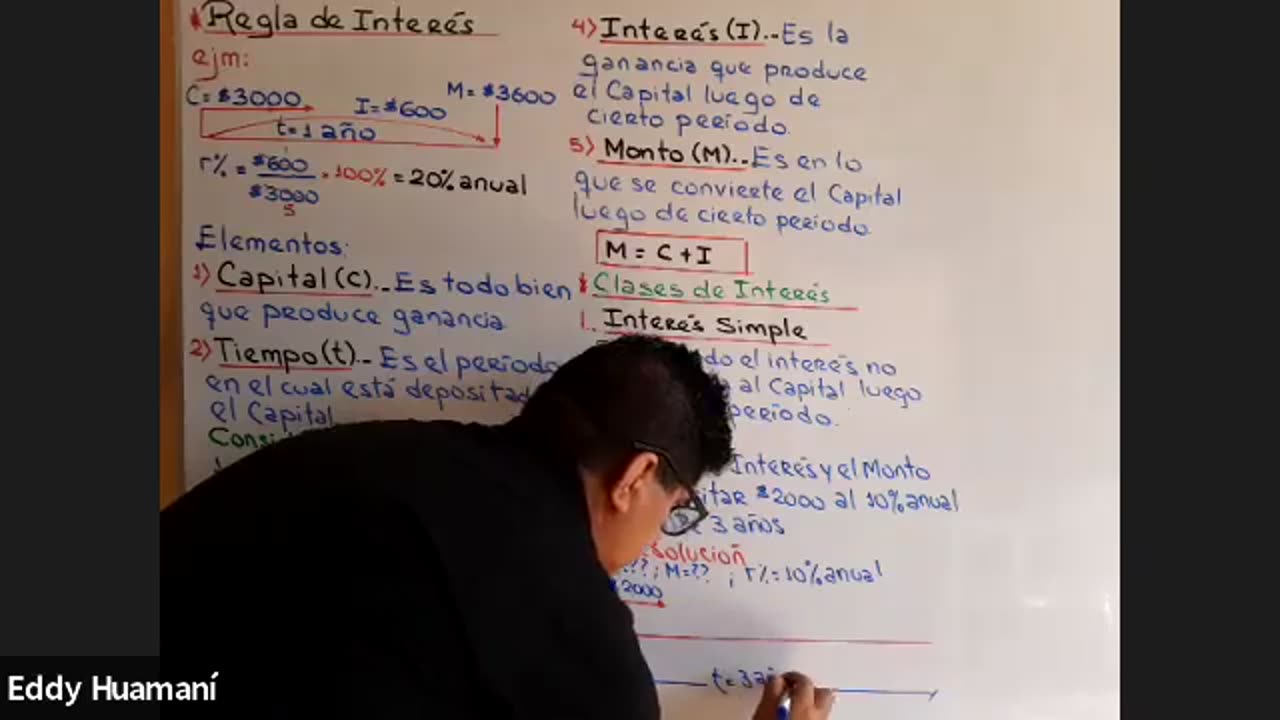 * Regla de Interés
ejm:
C = $3000
I = $600
M = $3600
t = 1 año
r% = $600 / $3000 . 100% = 20% anual
5
Elementos:
1) Capital (C)._ Es todo bien
que produce ganancia
2) Tiempo (t)._ Es el periodo
en el cual está depositad
el Capital
Consi
4) Interés (I)._ Es la
ganancia que produce
el Capital luego de
cierto periodo.
5) Monto (M)._ Es en lo
que se convierte el Capital
luego de cierto periodo
M = C + I
* Clases de Interés
1._ Interés Simple
do el interés no
al Capital luego
periodo.
Interés y el Monto
itar $2000 al 10% anual
3 años
solución
?? ; M = ?? ; r% = 10% anual
$2000
t = 3 añ
Eddy Huamaní